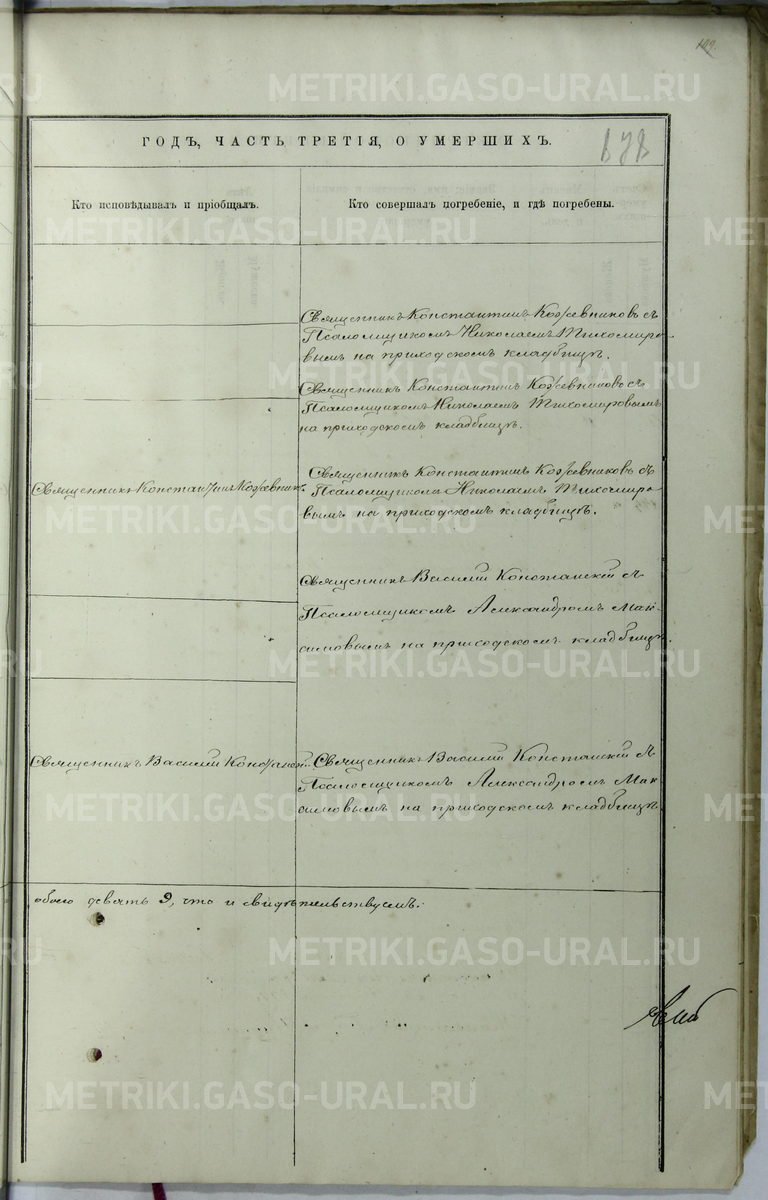 109.
ГОДЪ, ЧАСТЬ ТРЕТІЯ, О УМЕРШИХЪ.
Кто исповѣдывалъ и пріобщалъ.
Кто совершалъ погребеніе, и гдѣ погребены.
Священникъ Константинъ Кожевниковъ съ
Псаломщикомъ Николаемъ Тихомиро-
вымъ на приходскомъ кладбищѣ.
Священникъ Константинъ Кожевниковъ съ
Псаломщикомъ Николаемъ Тихомировымъ
на приходскомъ кладбищѣ.
Священникъ Константинъ Кожевник.
Священникъ Константинъ Кожевниковъ съ
Псаломщикомъ Николаемъ Тихомиро-
вымъ на приходскомъ кладбищѣ.
Священникъ Василій Констанскій съ
Псаломщикомъ Александромъ Мак-
симовымъ на приходскомъ кладбищѣ.
Священникъ Василій Констанс.
Священникъ Василій Констанскій съ
Псаломщикомъ Александромъ Мак-
симовымъ на приходскомъ кладбищѣ.
обоего девять 9, что и свидѣтельствуемъ.
METRIKI.GASO-URAL.RU